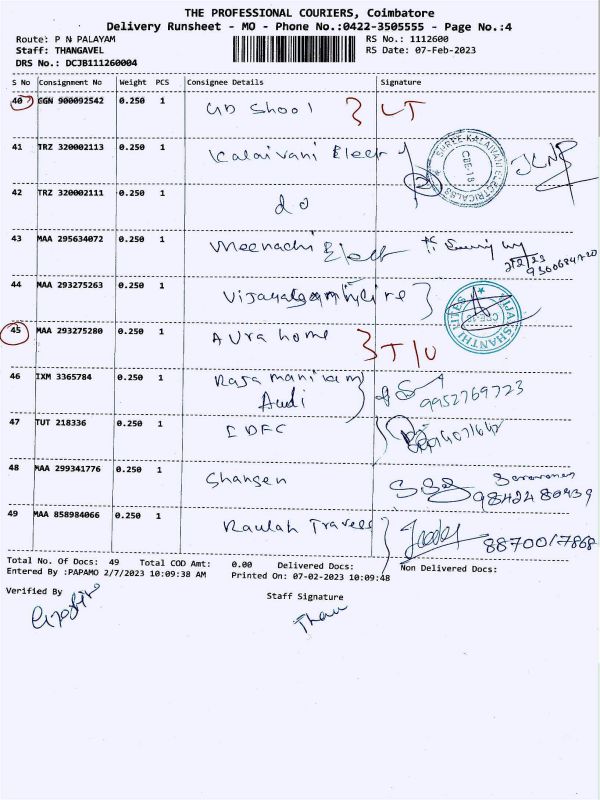 THE PROFESSIONAL COURIERS, Coimbatore
Delivery Runsheet - MO - Phone No.:0422-3505555 - Page No.:4
Route: P N PALAYAM RS No.: 1112600
Staff: THANGAVEL RS Date: 07-Feb-2023
DRS No.: DCJB111260004
S No Consignment No Weight PCS Consignee Details Signature
40 GGN 900092542 0.250 1 GD Shool LT
41 TRZ 320002113 0.250 1 Kalaivani Elect
SHREE KALAIVANI ELECTRICALS CBE-18
42 TRZ 320002111 0.250 1 do
43 MAA 295634072 0.250 1 Meenachi Elect
9300684720
44 MAA 293275263 0.250 1
45 MAA 293275280 0.250 1 Aura home T/U
46 IXM 3365784 0.250 1 Rajamanikam
Audi 9952769723
47 TUT 218336 0.250 1 IDFC
48 MAA 299341776 0.250 1 Shansen Saravanan
9842480939
49 MAA 858984066 0.250 1 Raulah Travels 8870017868
Total No. Of Docs: 49 Total COD Amt: 0.00 Delivered Docs: Non Delivered Docs:
Entered By :PAPAMO 2/7/2023 10:09:38 AM Printed On: 07-02-2023 10:09:48
Verified By Staff Signature
Than